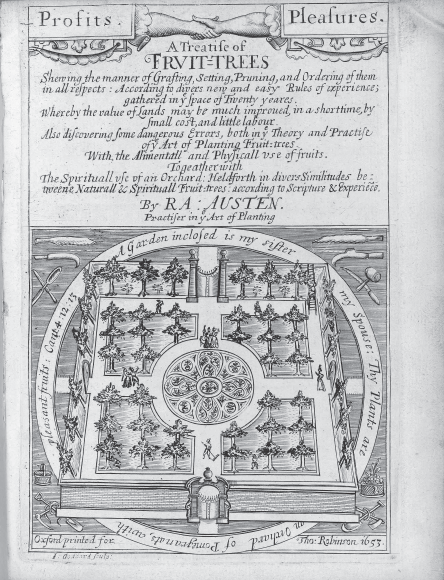 Profits.
Pleasures.
A Treatise of
FRVIT-TREES
Shewing the manner of Grafting, Setting, Pruning, and Ordering of them
in all respects: According to divers new and easy Rules of experience;
gathered in yͤ space of Twenty yeares.
Whereby the value of Lands may be much improued, in a shorttime, by
small cost, and little labour.
Also discovering some dangerous Errors, both in yͤ Theory and Practise
of yͤ Art of Planting Fruit-trees.
With the Alimentall and Physicall vse of fruits.
Togeather with
The Spirituall vse of an Orchard: Heldforth in divers Similitudes be:
tweene Naturall & Spirituall Fruit-trees: according to Scripture & Experiēce.
By RA: AUSTEN.
Practiser in yͤ Art of Planting
A Garden inclosed is my sister
my Spouse: Thy Plants are
an Orchard of Pomgranats, with
pleasant fruits: Cant: 4: 12: 13
Oxford printed for
Tho: Robinson 1653